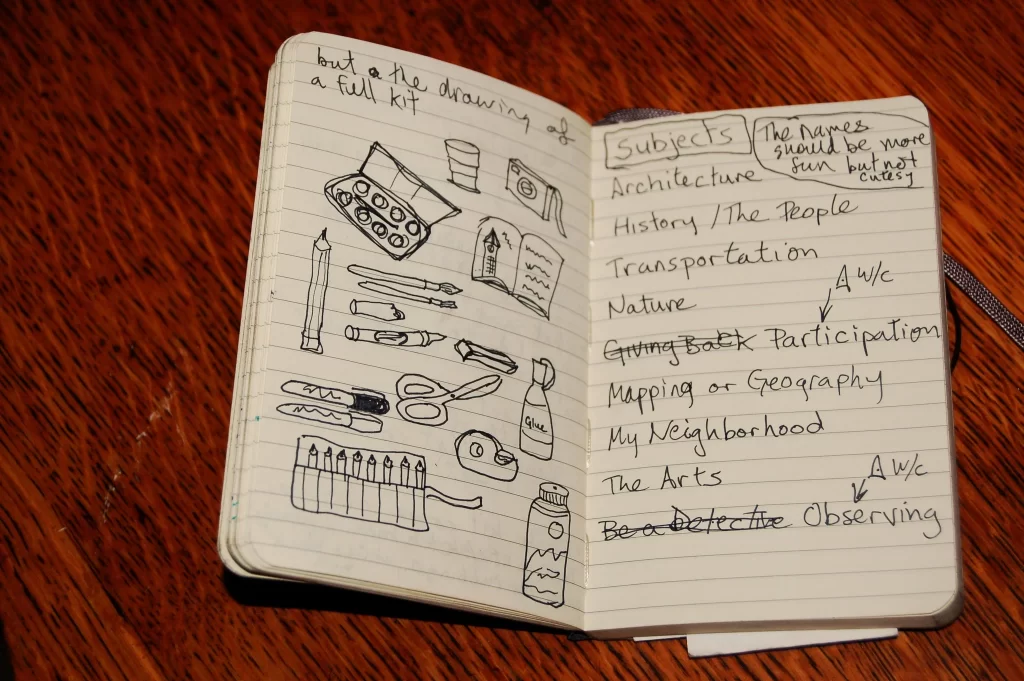 but a the drawing of
a full kit
Glue
Subjects
The names
should be more
fun but not
cutesy
Architecture
History / The People
Transportation
Nature
A w/c
Giving Back Participation
Mapping or Geography
My Neighborhood
The Arts
A w/c
Be a Detective Observing